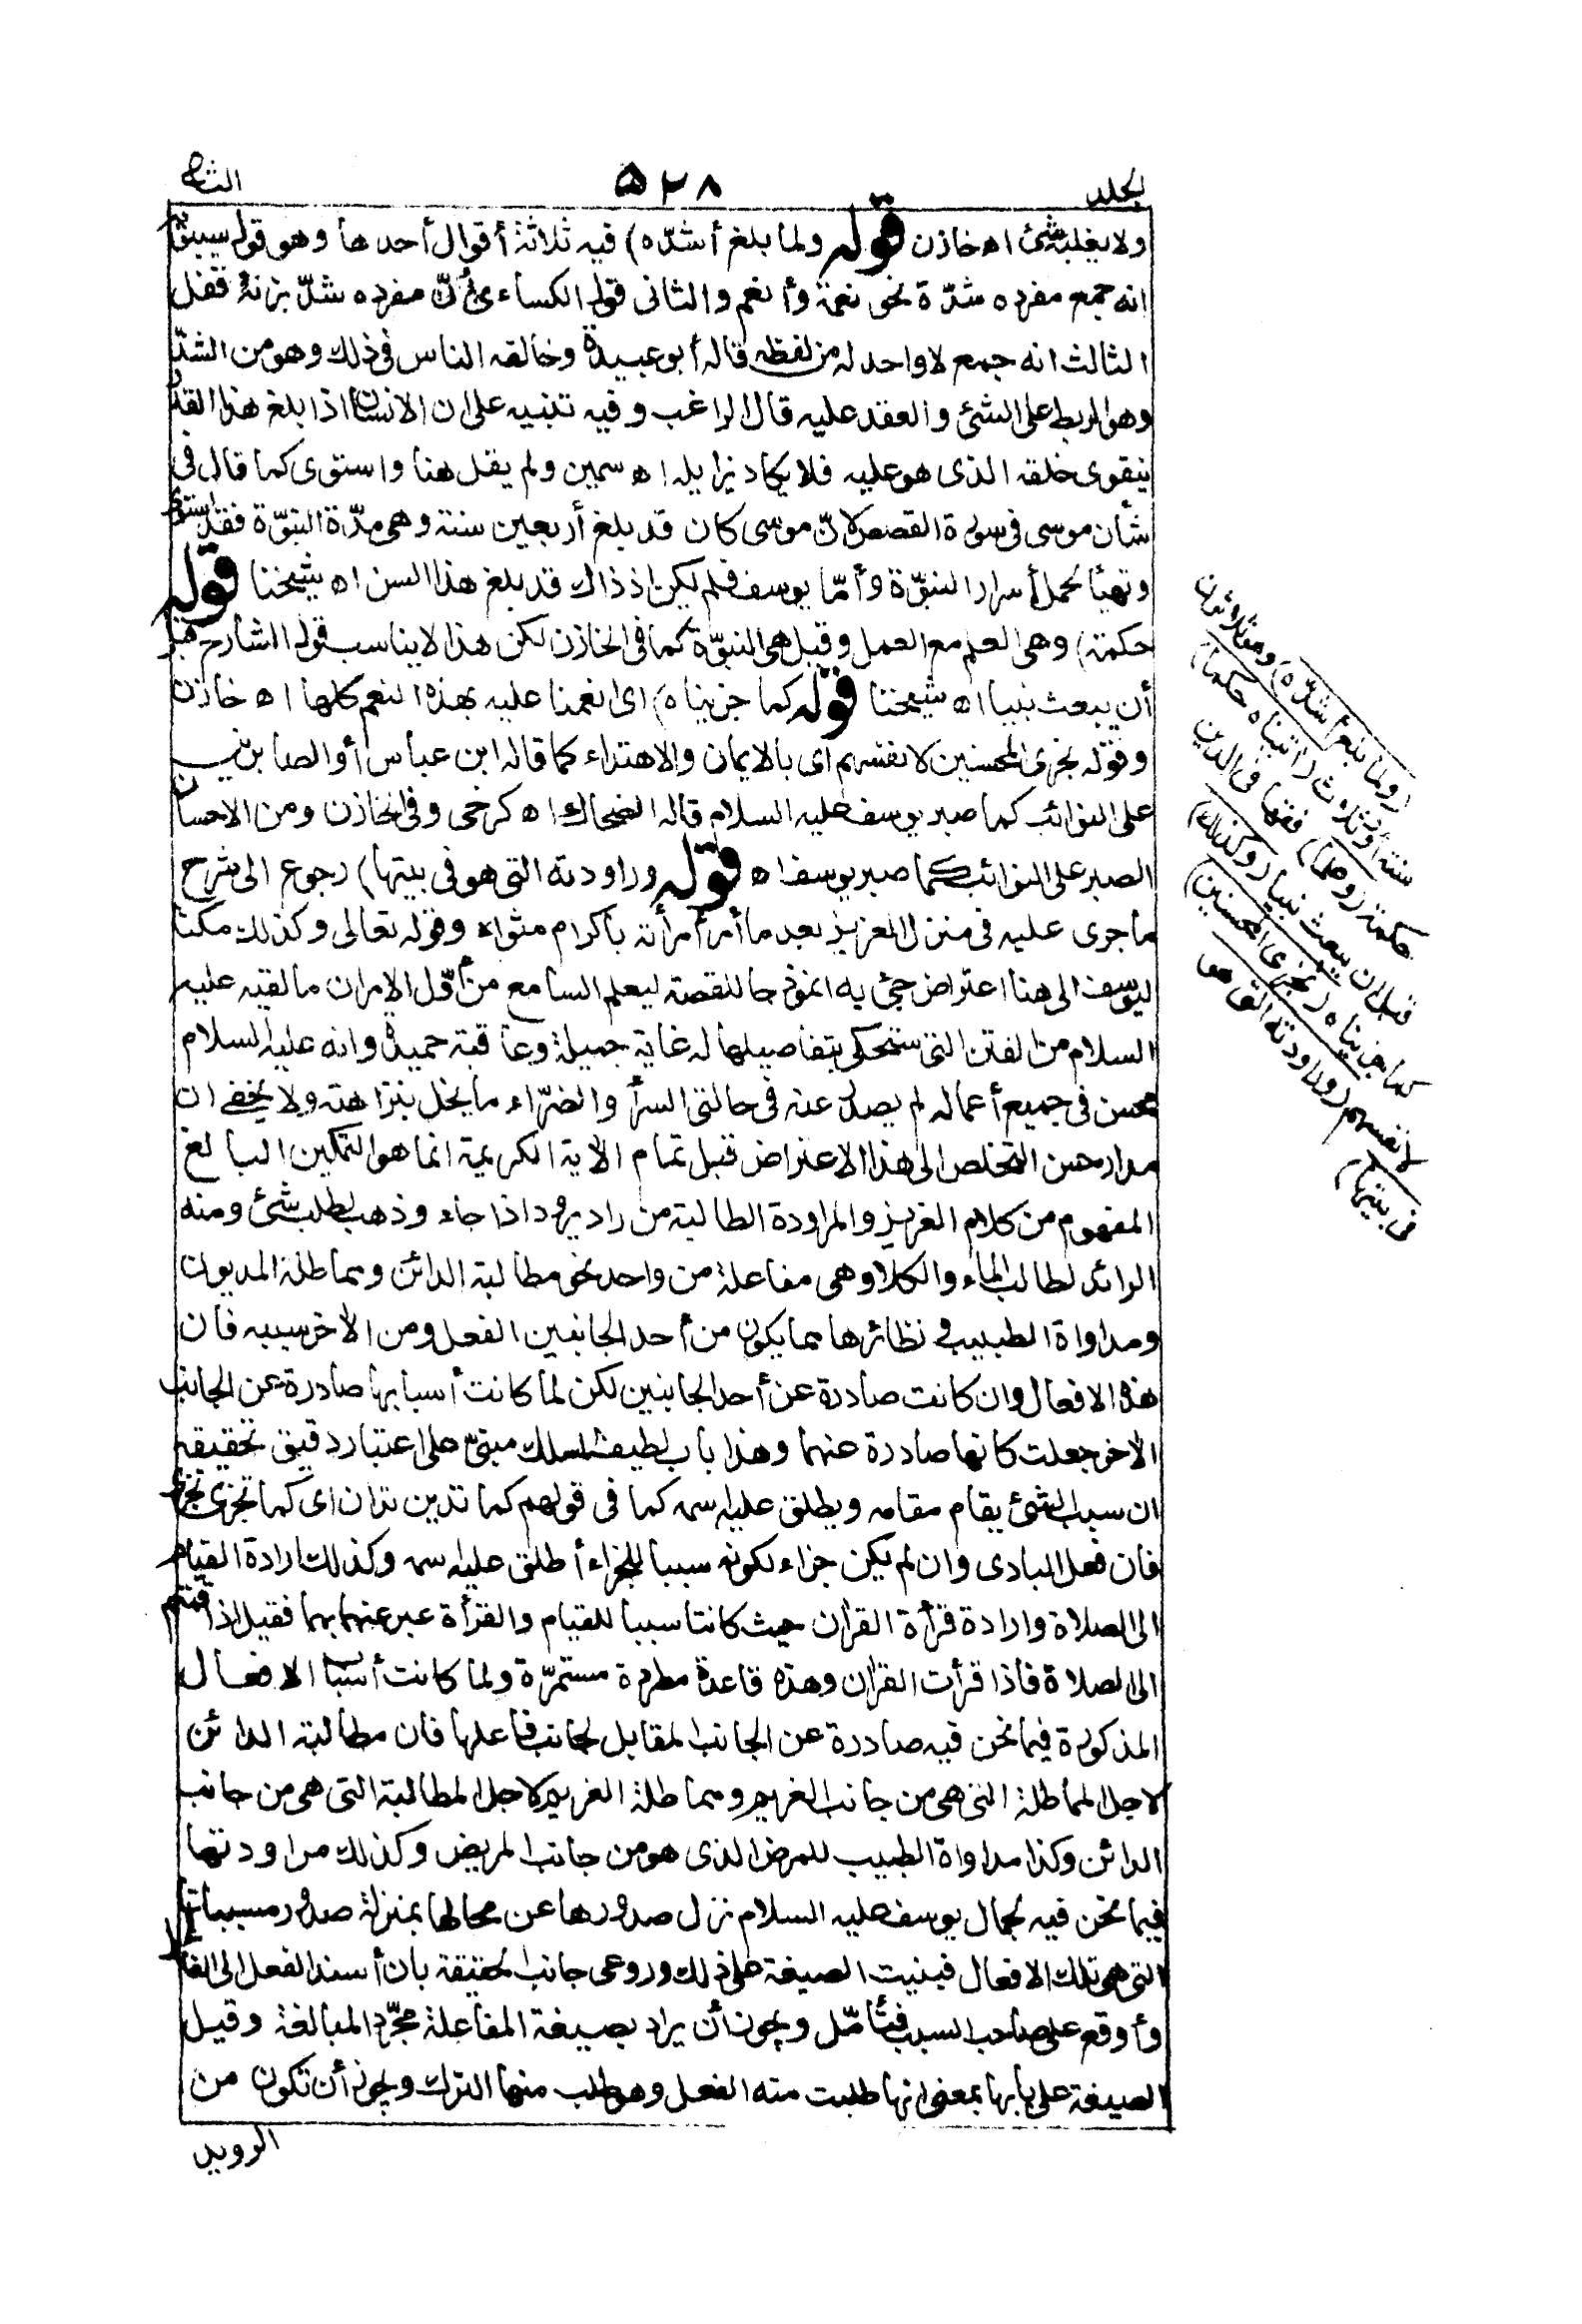 الجلد ٥٢٨ الثانى
ولا يغلبه شئ اه خازن قوله ولما بلغ أشدّه) فيه ثلاثة أقوال أحدها وهو قول سيبويه
انه جمع مفرده شدّة نحو نعمة وأنعم والثانى قول الكساءى أنّ مفرده شدّ بزنة قفل
الثالث انه جمع لا واحد له من لفظه قاله أبو عبيدة وخالفه الناس فى ذلك وهو من الشدّ
وهو الربط على الشئ والعقد عليه قال الراغب وفيه تنبيه على ان الانسان اذا بلغ هذا القدر
يتقوى خلقه الذى هو عليه فلا يكاد يزايله اه سمين ولم يقل هنا واستوى كما قال فى
شأن موسى فى سورة القصص لانّ موسى كان قد بلغ أربعين سنة وهى مدّة النبوّة فقد استوى
وتهيأ لحمل أسرار النبوّة وأمّا يوسف فلم يكن اذ ذاك قد بلغ هذا السن اه شيخنا قوله
حكمة) وهى العلم مع العمل وقيل هى النبوّة كما فى الخازن لكن هذا لا يناسب قول الشارح قبل
أن يبعث نبيا اه شيخنا قوله كما جزيناه) اى انعمنا عليه بهذه النعم كلها اه خازن
وقوله نجزى المحسنين لانفسهم اى بالايمان والاهتداء كما قاله ابن عباس أو الصابرين
على النوائب كما صبر يوسف عليه السلام قاله الضحاك اه كرخى وفى الخازن ومن الاحسان
الصبر على النوائب كما صبر يوسف اه قوله وراودته التى هو فى بيتها) رجوع الى شرح
ما جرى عليه فى منزل العزيز بعد ما أمر أمرأته باكرام مثواه وقوله تعالى وكذلك مكنا
ليوسف الى هنا اعتراض جئ به انموذجا للقصة ليعلم السامع من أوّل الامر ان ما لقيه عليه
السلام من الفتن التى ستحكى بتفاصيلها له غاية جميلة وعاقبة حميدة وانه عليه السلام
محسن فى جميع أعماله لم يصدر عنه فى حالتى السرّأ والضرّاء ما يخل بنزاهته ولا يخفى ان
مدار حسن التخلص الى هذا الاعتراض قبل تمام الآية الكريمة انما هو التمكين البالغ
المفهوم من كلام العزيز والمراودة الطالبة من راد يرود اذا جاء وذهب لطلب شئ ومنه
الرائد لطالب الماء والكلا وهى مفاعلة من واحد نحو مطالبة الدائن ومماطلة المديون
ومداواة الطبيب ونظائرها مما يكون من أحد الجانبين الفعل ومن الآخر سببه فان
هذه الافعال وان كانت صادرة عن أحد الجانبين لكن لما كانت أسبابها صادرة عن الجانب
الآخر جعلت كانها صادرة عنهما وهذا باب لطيف المسلك مبنىّ على اعتبار دقيق تحقيقه
ان سبب الشئ يقام مقامه ويطلق عليه اسمه كما فى قولهم كما تدين تدان اى كما تجزى تجزى
فان فعل البادى وان لم يكن جزاء لكونه سببا للجزاء أطلق عليه اسمه وكذلك ارادة القيام
الى الصلاة وارادة قرأة القرآن حيث كانتا سببا للقيام والقرأة عبر عنهما بهما فقيل اذا قمتم
الى الصلاة فاذا قرأت القرآن وهذه قاعدة مطردة مستمرّة ولما كانت أسباب الافعال
المذكورة فيما نحن فيه صادرة عن الجانب المقابل لجانب فاعلها فان مطالبة الدائن
لاجل المماطلة التى هى من جانب الغريم ومماطلة الغريم لاجل المطالبة التى هى من جانب
الدائن وكذا مداواة الطبيب للمرض الذى هو من جانب المريض وكذلك مراودتها
فيما نحن فيه لجمال يوسف عليه السلام نزل صدورها عن محالها بمنزلة صدور مسبباتها
التى هى تلك الافعال فبنيت الصيغة على ذلك وروعى جانب الحقيقة بان أسند الفعل الى الفاعل
وأوقع على صاحب السبب فتأمّل ويجوز أن يراد بصيغة المفاعلة مجرّد المبالغة وقيل
الصيغة على بابها بمعنى انها طلبت منه الفعل وهو طلب منها الترك ويجوز أن تكون من
الرويد
(ولما بلغ أشدّه) وهو ثلاثون
سنة أو وثلاث (آتيناه حكما)
حكمة (وعلما) فقها فى الدين
قبل ان يبعث نبيا (وكذلك)
كما جزيناه (نجزى المحسنين)
لانفسهم (وراودته التى هو
فى بيتها)